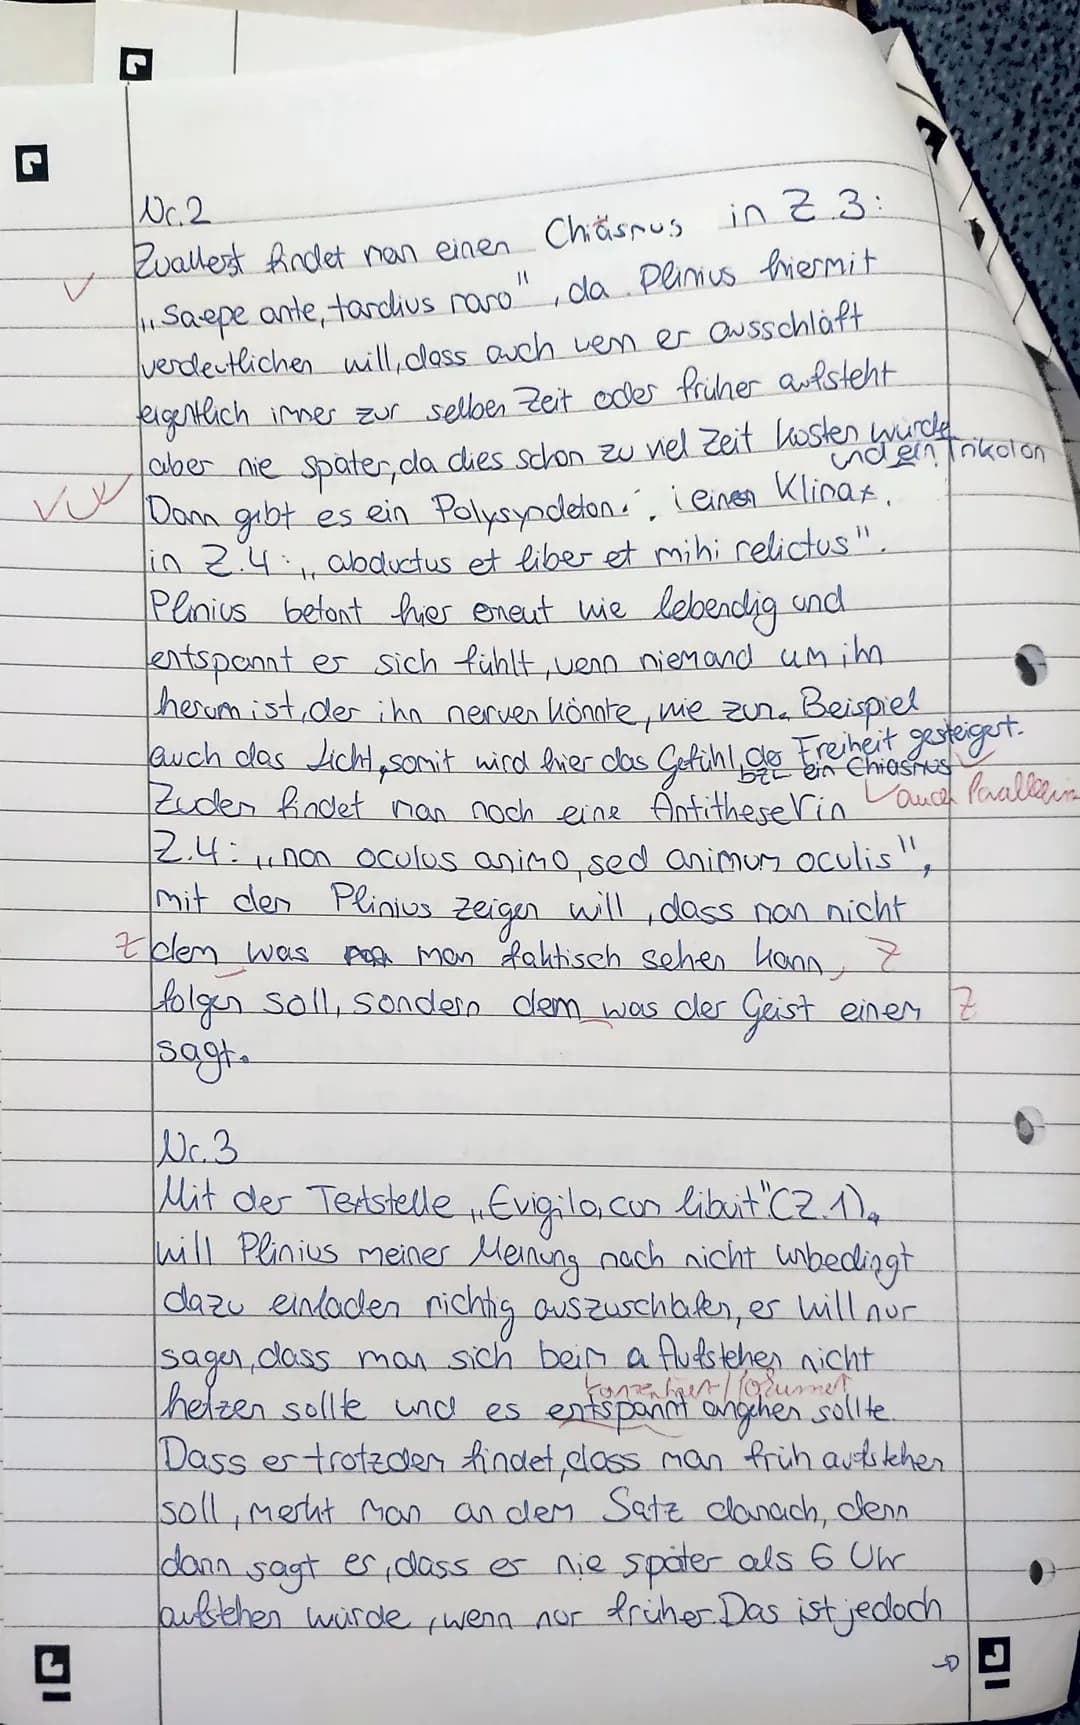 Nr. 2
Zuallerst findet man einen Chiasmus in Z. 3:
„Saepe ante, tardius raro", da Plinius hiermit
verdeutlichen will, dass auch wen er ausschläft
eigentlich immer zur selben Zeit oder früher aufsteht
aber nie später, da dies schon zu viel Zeit kosten würde
und ein Trikolon
Dann gibt es ein Polysyndeton, einen Klimax,
in Z. 4: „abductus et liber et mihi relictus".
Plinius betont hier erneut wie lebendig und
entspannt er sich fühlt, wenn niemand um ihn
herum ist, der ihn nerven könnte, wie zum Beispiel
auch das Licht, somit wird hier das Gefühl der Freiheit gesteigert.
bzw ein Chiasmus
Zudem findet man noch eine Antithese V in auch Parallelism
Z. 4: „non oculos animo, sed animum oculis",
mit dem Plinius zeigen will, dass man nicht
Z dem was man faktisch sehen kann, Z
folgen soll, sondern dem was der Geist einem Z
sagt.
Nr. 3
Mit der Textstelle „Evigilo, cum libuit" (Z. 1),
will Plinius meiner Meinung nach nicht unbedingt
dazu einladen richtig auszuschlafen, er will nur
sagen, dass man sich beim a Aufstehen nicht
konzentriert /
hetzen sollte und es entspannt angehen sollte.
Dass er trotzdem findet, dass man früh aufstehen
soll, merkt man an dem Satz danach, denn
dann sagt er, dass er nie später als 6 Uhr
aufstehen würde, wenn nur früher. Das ist jedoch